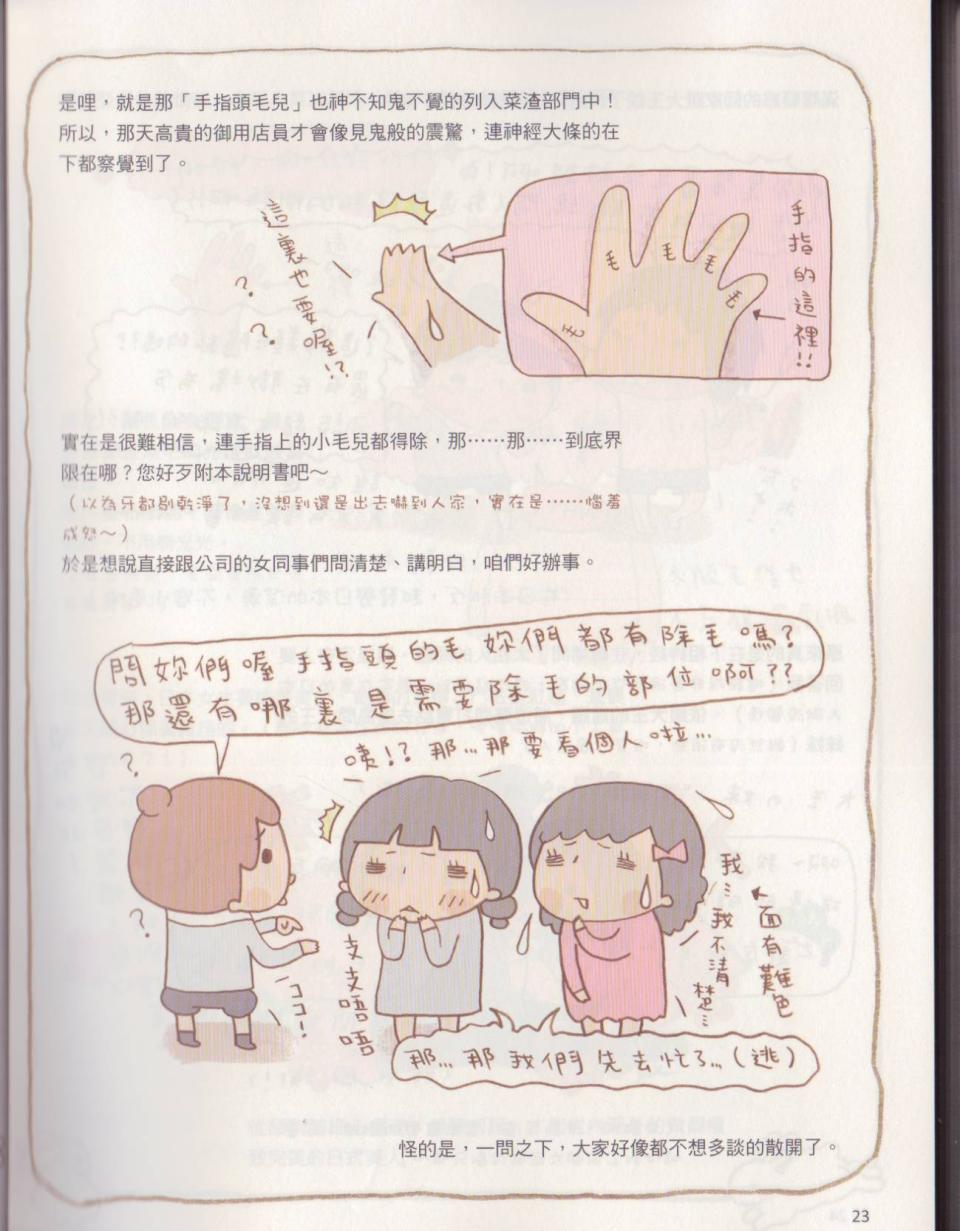 是哩，就是那「手指頭毛兒」也神不知鬼不覺的列入菜渣部門中！
所以，那天高貴的御用店員才會像見鬼般的震驚，連神經大條的在
下都察覺到了。
這裏也要喔!?
?
?
手指的這裡!!
毛
毛
毛
毛
毛
實在是很難相信，連手指上的小毛兒都得除，那……那……到底界
限在哪？您好歹附本說明書吧～
（以為牙都剔乾淨了，沒想到還是出去嚇到人家，實在是……惱羞
成怒～）
於是想說直接跟公司的女同事們問清楚、講明白，咱們好辦事。
問妳們喔 手指頭的毛 妳們都有除毛嗎?
那還有哪裏 是需要除毛的部位啊!?
?
咦!? 那…那要看個人啦…
?
ココ!
支支唔唔
我…我不清楚…
面有難色
那…那我們先去忙了…(逃)
怪的是，一問之下，大家好像都不想多談的散開了。
23